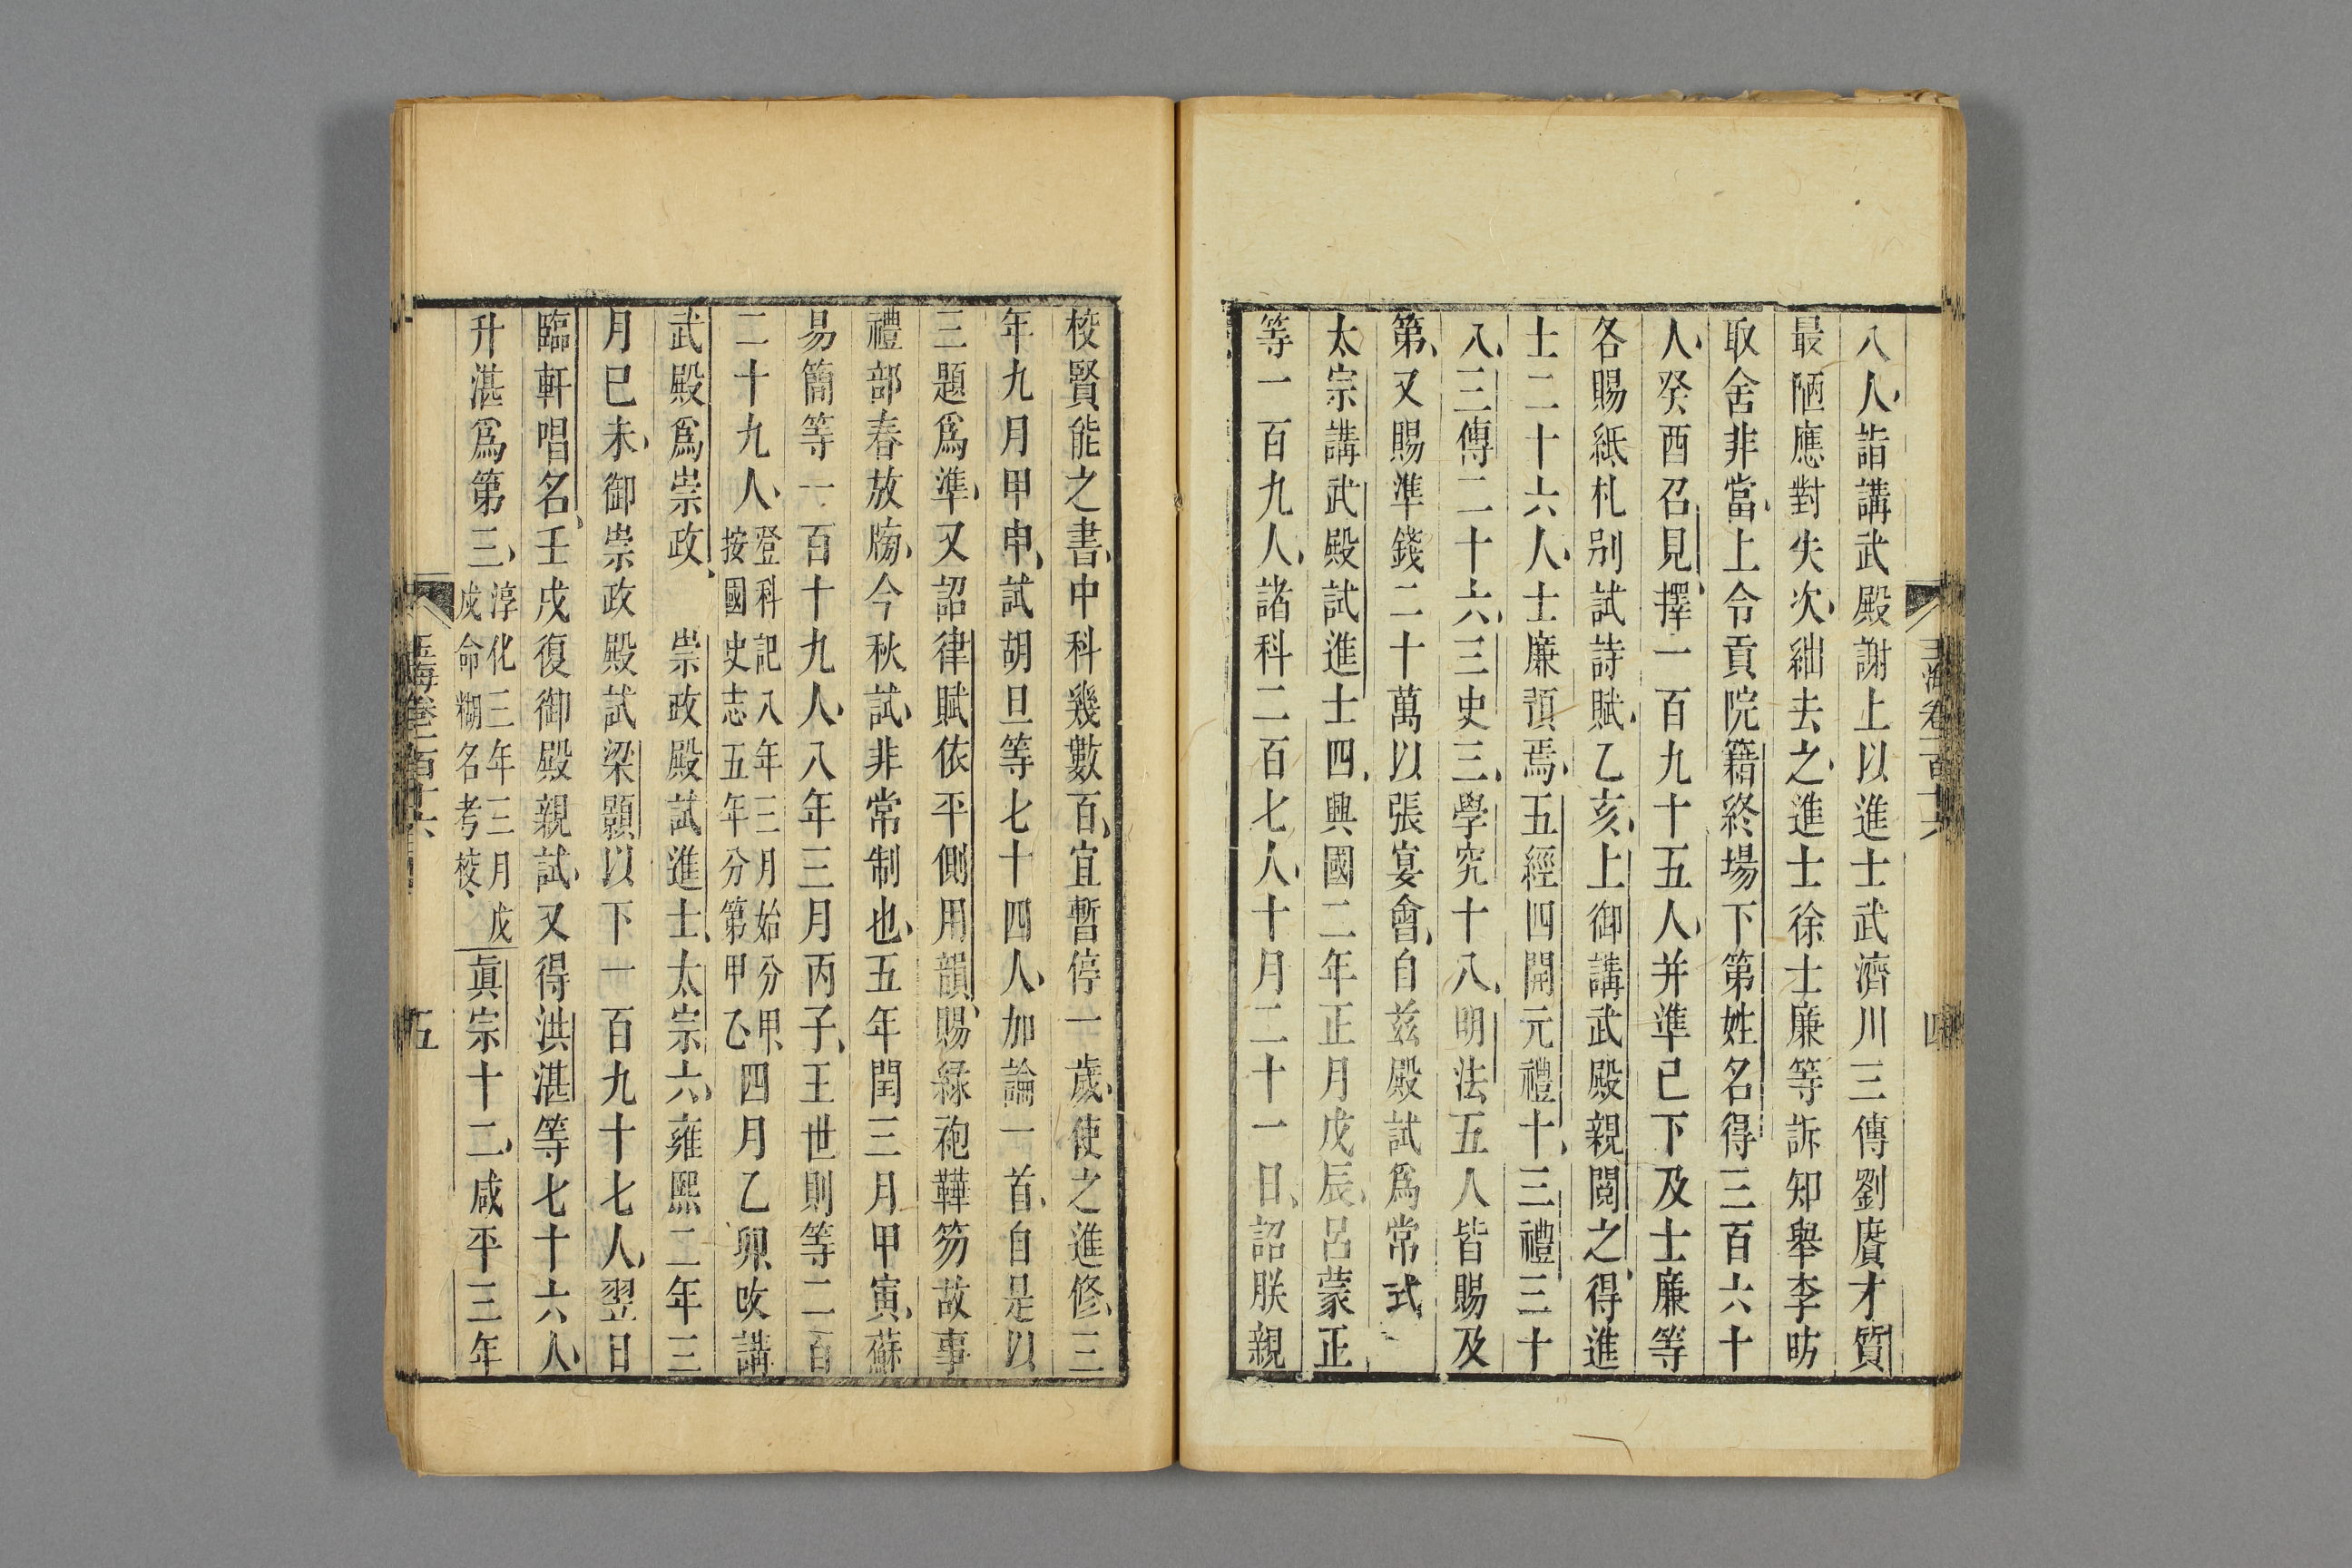 玉海卷一百十六
四
八人詣講武殿謝上以進士武濟川三傳劉賡才質
最陋應對失次絀去之進士徐士廉等訴知舉李昉
取舍非當上令貢院籍終場下第姓名得三百六十
人癸酉召見擇一百九十五人并準已下及士廉等
各賜紙札别試詩賦乙亥上御講武殿親閱之得進
士二十六人士廉預焉五經四開元禮十三禮三十
八三傳二十六三史三學究十八明法五人皆賜及
第又賜準錢二十萬以張宴會自兹殿試爲常式
太宗講武殿試進士四興國二年正月戊辰呂蒙正
等一百九人諸科二百七人十月二十一日詔朕親
校賢能之書中科幾數百宜暫停一歲使之進修三
年九月甲申試胡旦等七十四人加論一首自是以
三題爲準又詔律賦依平側用韻賜緑袍鞾笏故事
禮部春放牓今秋試非常制也五年閏三月甲寅蘇
易簡等一百十九人八年三月丙子王世則等二百
二十九人登科記八年三月始分甲按國史志五年分第甲乙四月乙卯改講
武殿爲崇政 崇政殿試進士太宗六雍熙二年三
月已未御崇政殿試梁顥以下一百九十七人翌日
臨軒唱名壬戌復御殿親試又得洪湛等七十六人
升湛爲第三淳化三年三月戊戌命糊名考校眞宗十二咸平三年
玉海卷一百十六
五